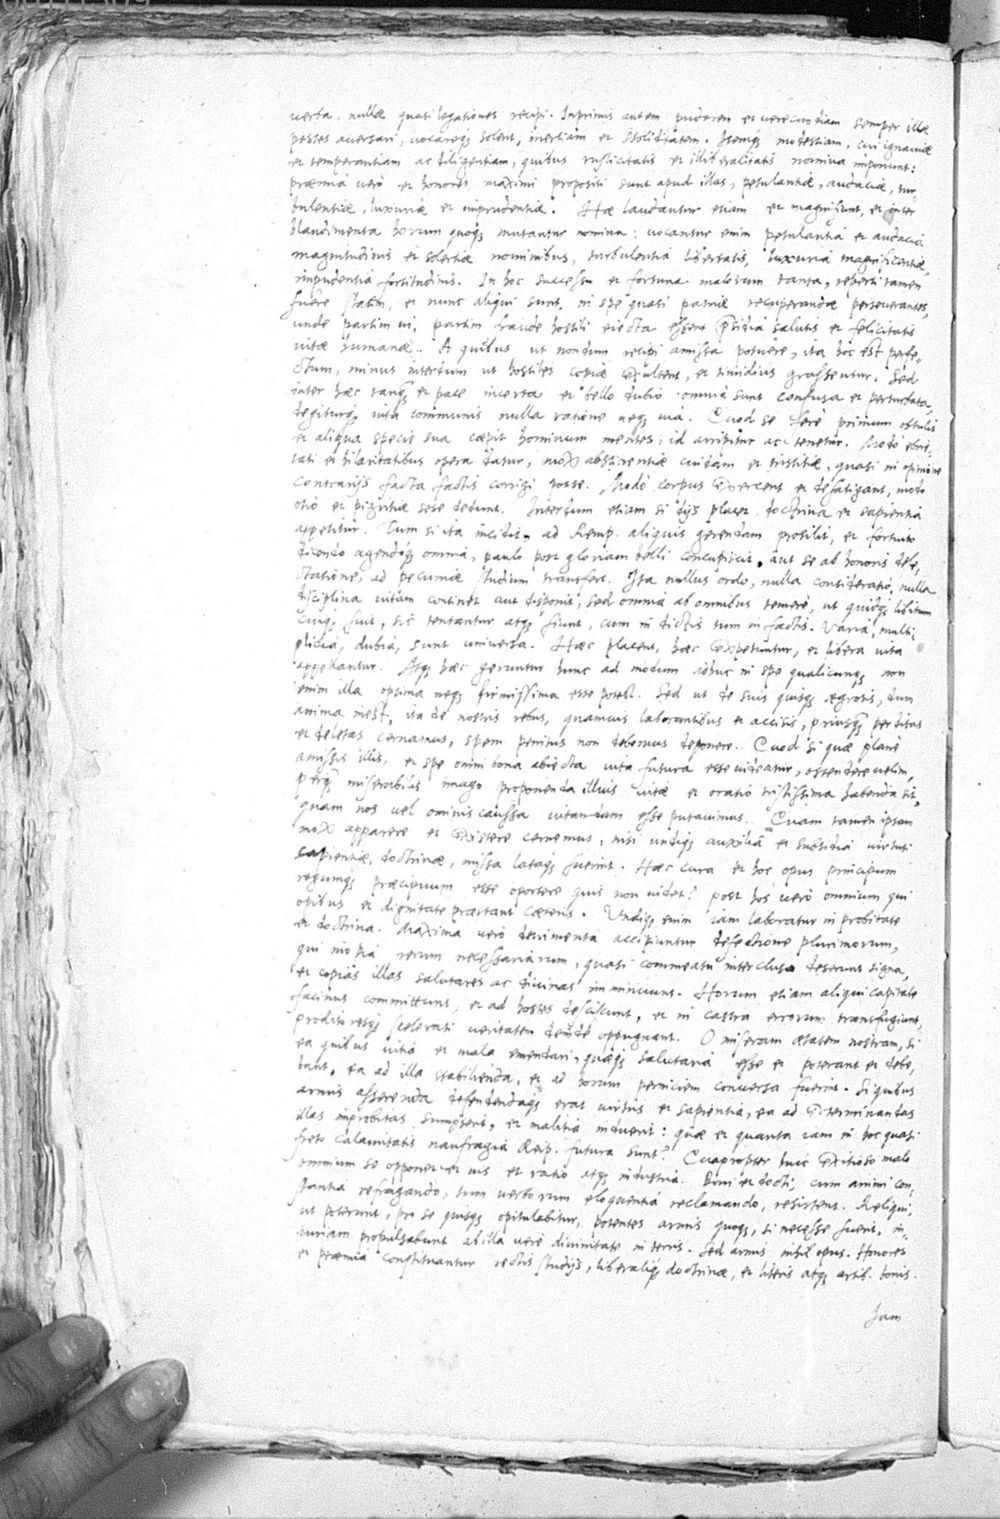 verba, nullae quasi legationes recipi. Inprimis autem pudorem et verecundiam semper illae
pestes aversari, vocareq; solent, inertiam et stoliditatem. Itemq; modestiam, cui ignaviae
et temperantiam ac diligentiam, quibus rusticitatis et illiberalitatis nomina imponunt:
praemia verò et honores maximi propositi sunt apud illas, petulantiae, audaciae, tur-
bulentiae, luxuriae et imprudentiae. Hae laudantur etiam et magnifiunt, et inter
blandimenta horum quoq; mutantur nomina: vocantur enim petulantia et audacia
magnitudinis et solertiae nominibus, turbulentia libertatis, luxuria magnificentiae,
impudentia fortitudinis. In hoc successu et fortuna malorum tanta, reperti tamen
fuere statim, et nunc aliqui sunt, in spe quasi patriae recuperandae perseverantes,
unde partim vi, partim fraude hostili eiecta essent praesidia salutis et felicitatis
vitae humanae. A quibus ut nondum recipi amissa potuere, ita hoc est perfe-
ctum, minus interdum ut hostiles copiae exultent, et timidius grassentur. Sed
inter haec tanq; et pace incerta et bello dubio omnia sunt confusa et perturbata,
degiturq; vita communis nulla ratione neq; via. Quod se ferè primum obtulit
et aliqua specie sua coepit hominum mentes, id arripitur ac tenetur. Modò ebrie-
tati et hilaritatibus opera datur, mox abstinentiae cuidam et tristitiae, quasi in opinione
contrarijs facta factis corrigi posse. Modò corpus exercent et defatigant, modo
otio et pigritiae sese dedunt. Interdum etiam si dijs placet doctrina et sapientia
appetitur. Tum si ita incidit, ad Remp. aliquis gerendam prosilit, et fortuito
dicendo agendoq; omnia, paulo post gloriam belli concupiscit, aut se ab honoris dele-
ctatione, ad pecuniae studium transfert. Ita nullus ordo, nulla consideratio, nulla
disciplina vitam continet aut disponit, sed omnia ab omnibus temerè, ut quidq; libitum
cuiq; fuit, sic tentantur atq; fiunt, cum in dictis tum in factis. Varia, multi-
plicia, dubia, sunt universa. Haec placent, haec expetuntur, et libera vita
appellantur. Atq; haec geruntur hunc ad modum adhuc in spe qualicunq; non
enim illa optima neq; firmissima esse potest. Sed ut de suis quisq; aegrotis, dum
anima inest, ita de nostris rebus, quamvis laborantibus et accisis, priusq; perditas
et deletas cernamus, spem penitus non debemus deponere. Quod si quae planè
amissis illis, et spe omni bona abiecta vita futura esse videatur, ostendere velim,
perq; miserabilis imago proponenda illius vitae et oratio tristissima habenda sit,
quam nos vel ominis caussa vitandam esse putavimus. Quam tamen ipsam
mox apparere et existere cernemus, nisi undiq; auxilia et subsidia virtuti
sapientiae, doctrinae, missa lataq; fuerint. Haec cura et hoc opus principum
regumq; praecipuum esse oportere quis non videt? post hos verò omnium qui
opibus et dignitate praestant caeteris. Undiq; enim iam laboratur in probitate
et doctrina. Maxima verò detrimenta accipiuntur defectione plurimorum,
qui inopia rerum necessariarum, quasi commeatu intercluso deserunt signa,
et copias illas salutares ac divinas imminuunt. Horum etiam aliqui capitale
facinus committunt, et ad hostes desciscunt, et in castra errorum transfugiunt,
proditoresq; scelerati veritatem deinde oppugnant. O miseram aetatem nostram, si
ea quibus vitia et mala emendari, quaeq; salutaria esse et poterant et debe-
bant, ea ad illa stabilienda, et ad horum perniciem conversa fuerint. Si quibus
armis asserenda defendendaq; erat virtus et sapientia, ea ad exterminandas
illas improbitas sumpserit, et malitia induerit: quae et quanta iam in hoc quasi
freto calamitatis naufragia Reip. futura sunt? Quapropter huic exitioso malo
omnium se opponet et vis et ratio atq; industria. Boni et docti, cum animi con-
stantia refragando, tum verborum eloquentia reclamando, resistent. Reliqui,
ut poterunt, pro se quisq; opitulabitur, potentes armis quoq;, si necesse fuerit, in-
iuriam propulsabunt ab illa verè divinitate in terris. Sed armis nihil opus. Honores
et praemia constituantur rectis studijs, liberaliq; doctrinae, et literis atq; artib. bonis.
Jam